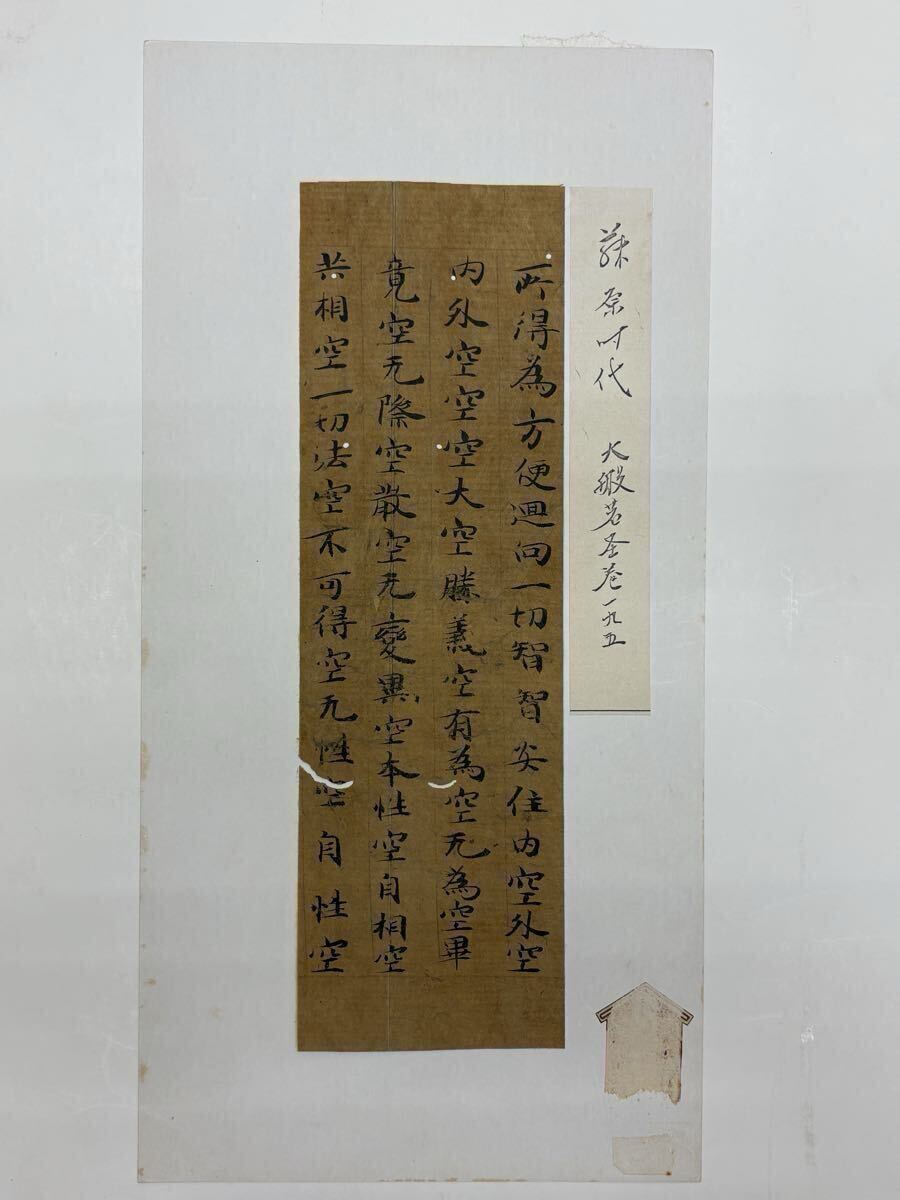 藤原时代　大般若圣卷一九五
所得為方便迴向一切智智安住内空外空
内外空空空大空勝義空有為空无為空畢
竟空无際空散空无變異空本性空自相空
共相空一切法空不可得空无性空自性空